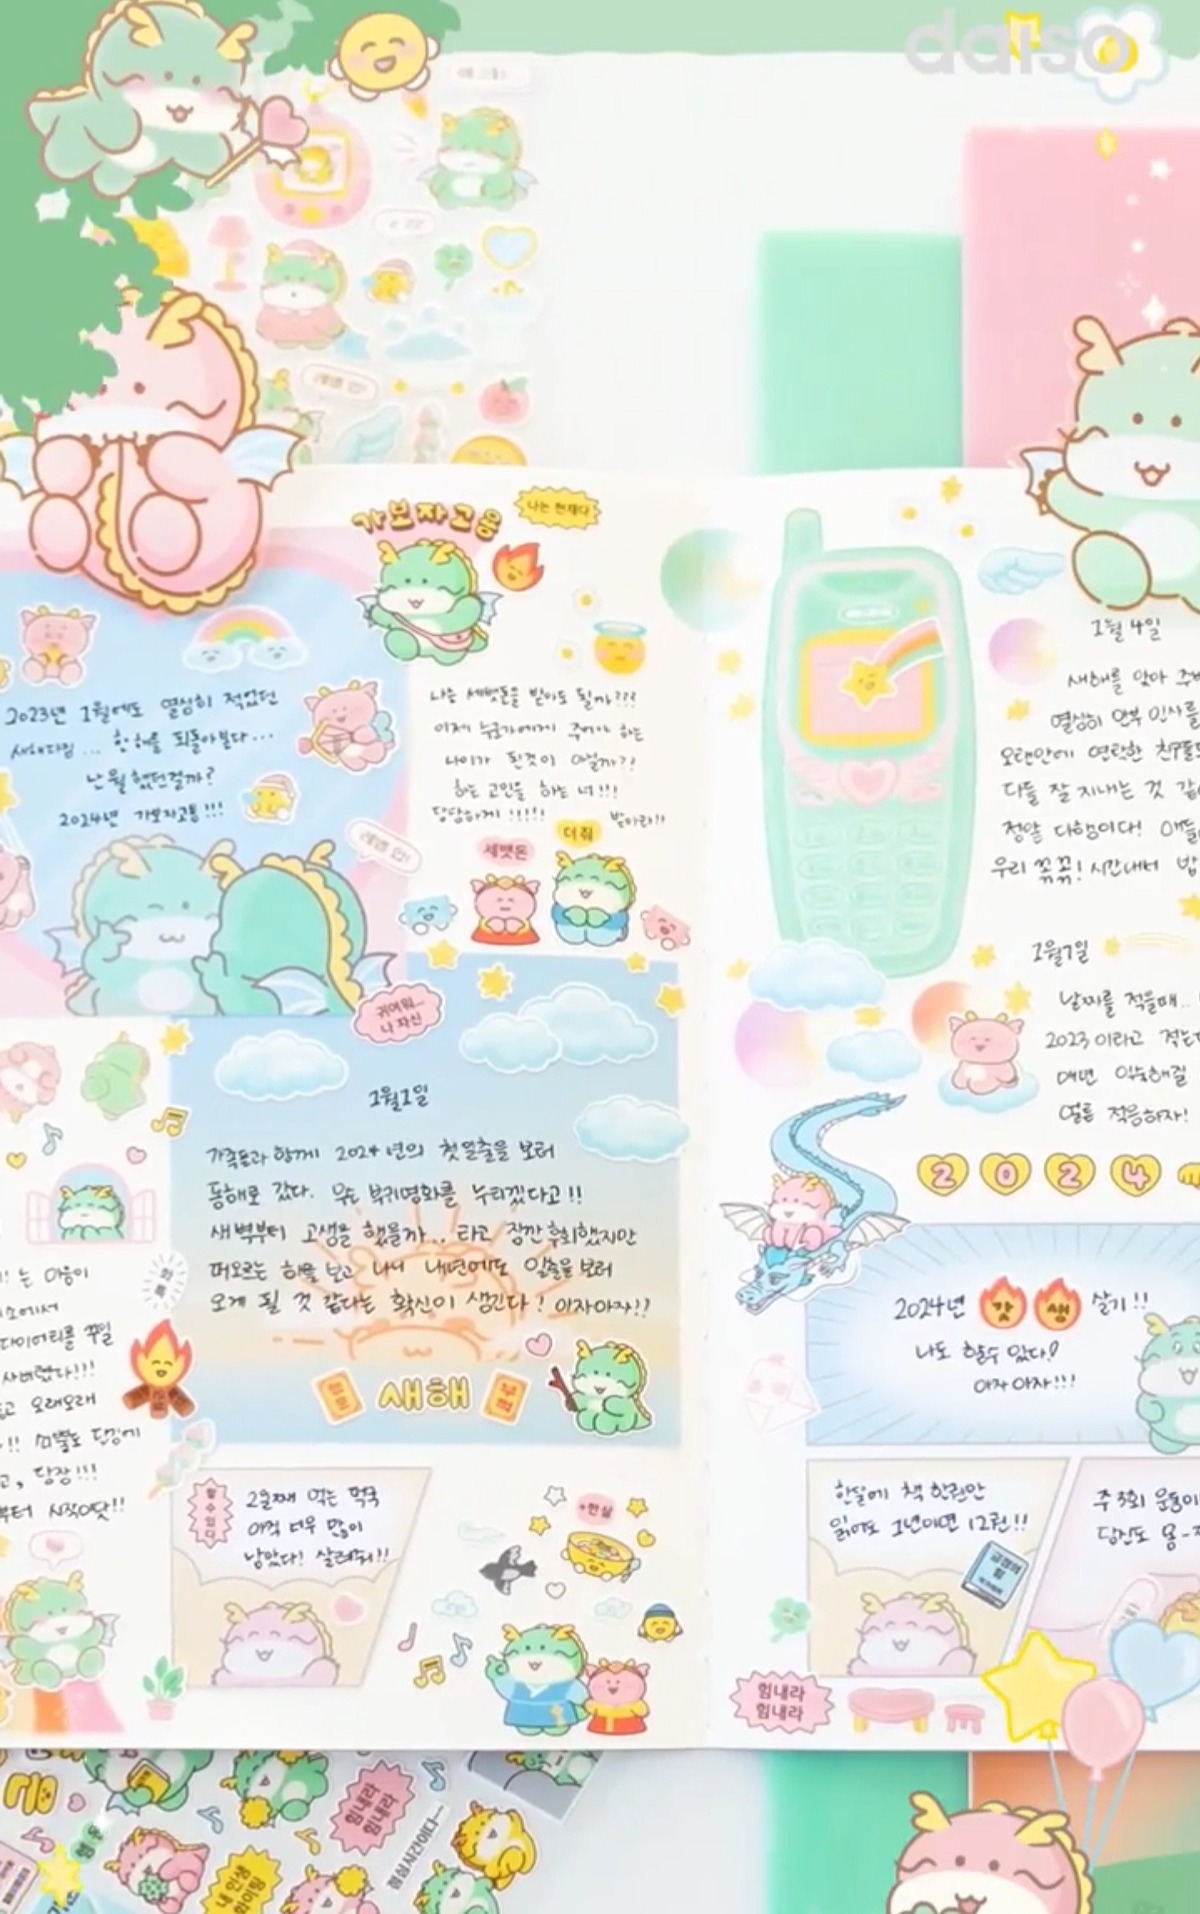 daiso
가보자고용
나는 천재다
2023년 1월에도 열심히 적었던
새해다짐... 한 해를 되돌아본다...
난 뭘 했던걸까?
2024년 가보자고용!!!
레벨 업!
나는 세뱃돈을 받아도 될까???
이제 누군가에게 주어야 하는
나이가 된것이 아닐까??
하는 고민을 하는 너!!!
당당하게!!!!! 받아라!!
세뱃돈
더 줘
귀여워...
나 자신
1월1일
가족들과 함께 2024년의 첫 일출을 보러
동해로 갔다. 무슨 부귀영화를 누리겠다고!!
새벽부터 고생을 했을까.. 라고 잠깐 후회했지만
떠오르는 해를 보고 나니 내년에도 일출을 보러
오게 될 것 같다는 확신이 생긴다! 아자아자!!
새해
부적
는 마음이
소에서
다이어리를 꾸밀
사버렸다!!!
오래오래
당장!!!
부터 시작이닷!!
할수있다
2울째 먹는 떡국
아직 너무 많이
남았다! 살려줘!!
+한살
1월 4일
새해를 맞아 주변
열심히 안부 인사를
오랜만에 연락한 친구들도
다들 잘 지내는 것 같
정말 다행이다! 얘들
우리 꼭꼭! 시간내서 밥
1월7일
날짜를 적을때..
2023이라고 적는
매년 익숙해질
얼른 적응하자!
2024
2024년 갓생 살기!!
나도 할수 있다!
아자아자!!!
한달에 책 한권만
읽어도 1년이면 12권!!
긍정의
힘
주 3회 운동이
당신도 몸-
힘내라
힘내라
힘내라
힘내라
점심시간이다~
내 인생
화이팅